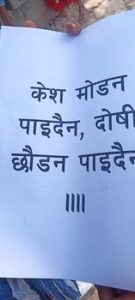 केश मोडन
पाइदैन, दोषी
छौडन पाइदैन
॥॥